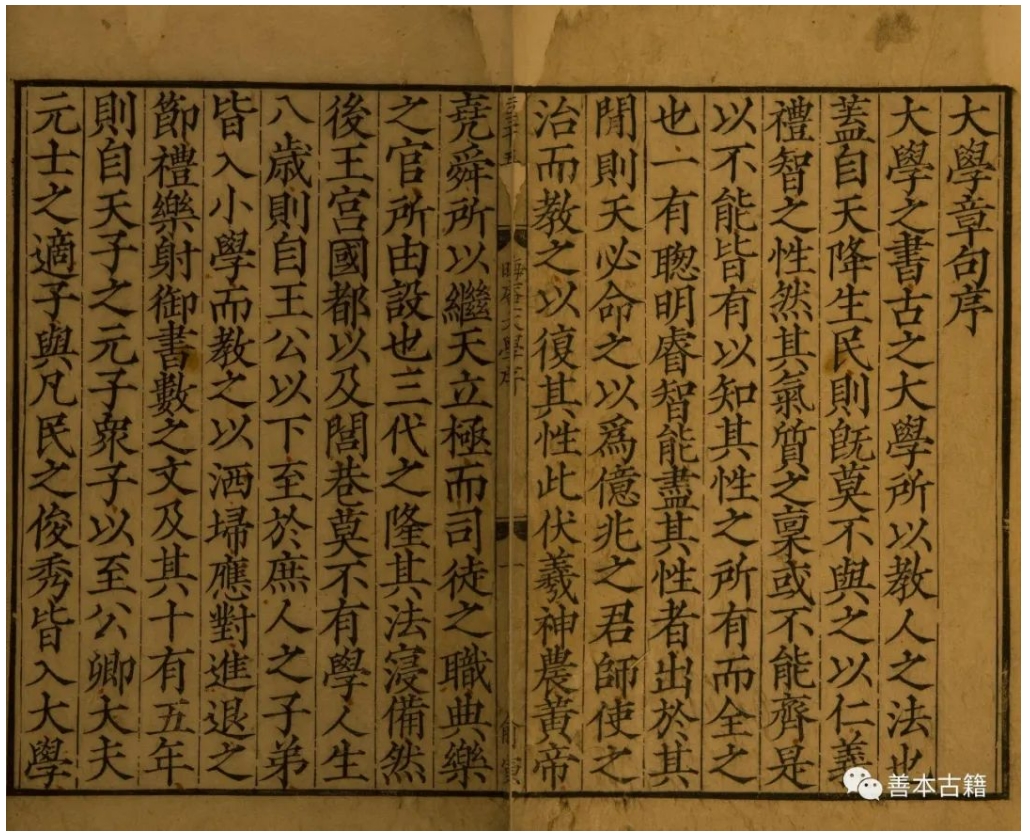 大學章句序
大學之書古之大學所以教人之法也
蓋自天降生民則既莫不與之以仁義
禮智之性然其氣質之稟或不能齊是
以不能皆有以知其性之所有而全之
也一有聦明睿智能盡其性者出於其
閒則天必命之以爲億兆之君師使之
治而教之以復其性此伏羲神農黃帝
大學序
一
堯舜所以繼天立極而司徒之職典樂
之官所由設也三代之隆其法寖備然
後王宫國都以及閭巷莫不有學人生
八歲則自王公以下至於庶人之子弟
皆入小學而教之以洒埽應對進退之
節禮樂射御書數之文及其十有五年
則自天子之元子衆子以至公卿大夫
元士之適子與凡民之俊秀皆入大學
善本古籍